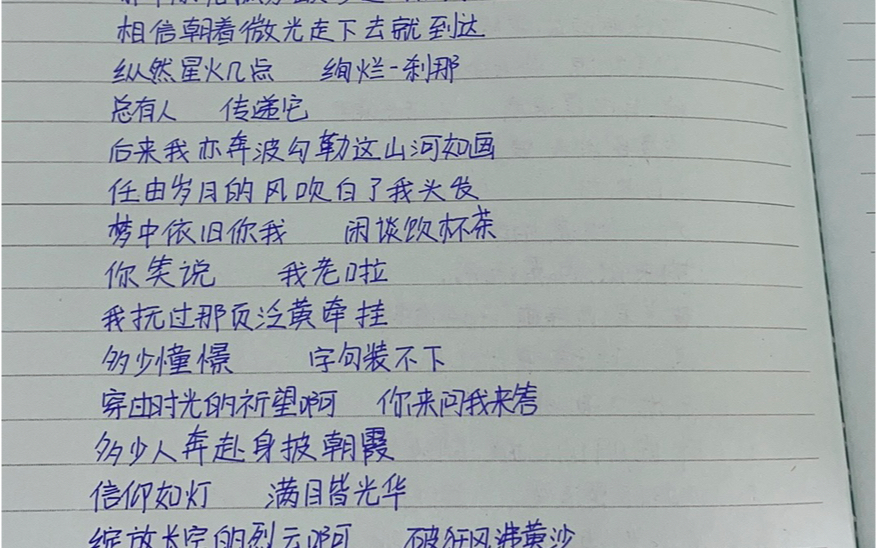 相信朝着微光走下去就到达
纵然星火几点 绚烂一刹那
总有人 传递它
后来我亦奔波勾勒这山河如画
任由岁月的风吹白了我头发
梦中依旧你我 闲谈饮杯茶
你笑说 我老啦
我抚过那页泛黄牵挂
多少憧憬 字句装不下
穿过时光的祈望啊 你来问我来答
多少人奔赴身披朝霞
信仰如灯 满目皆光华
绽放长空的烈云啊 破狂风沸黄沙